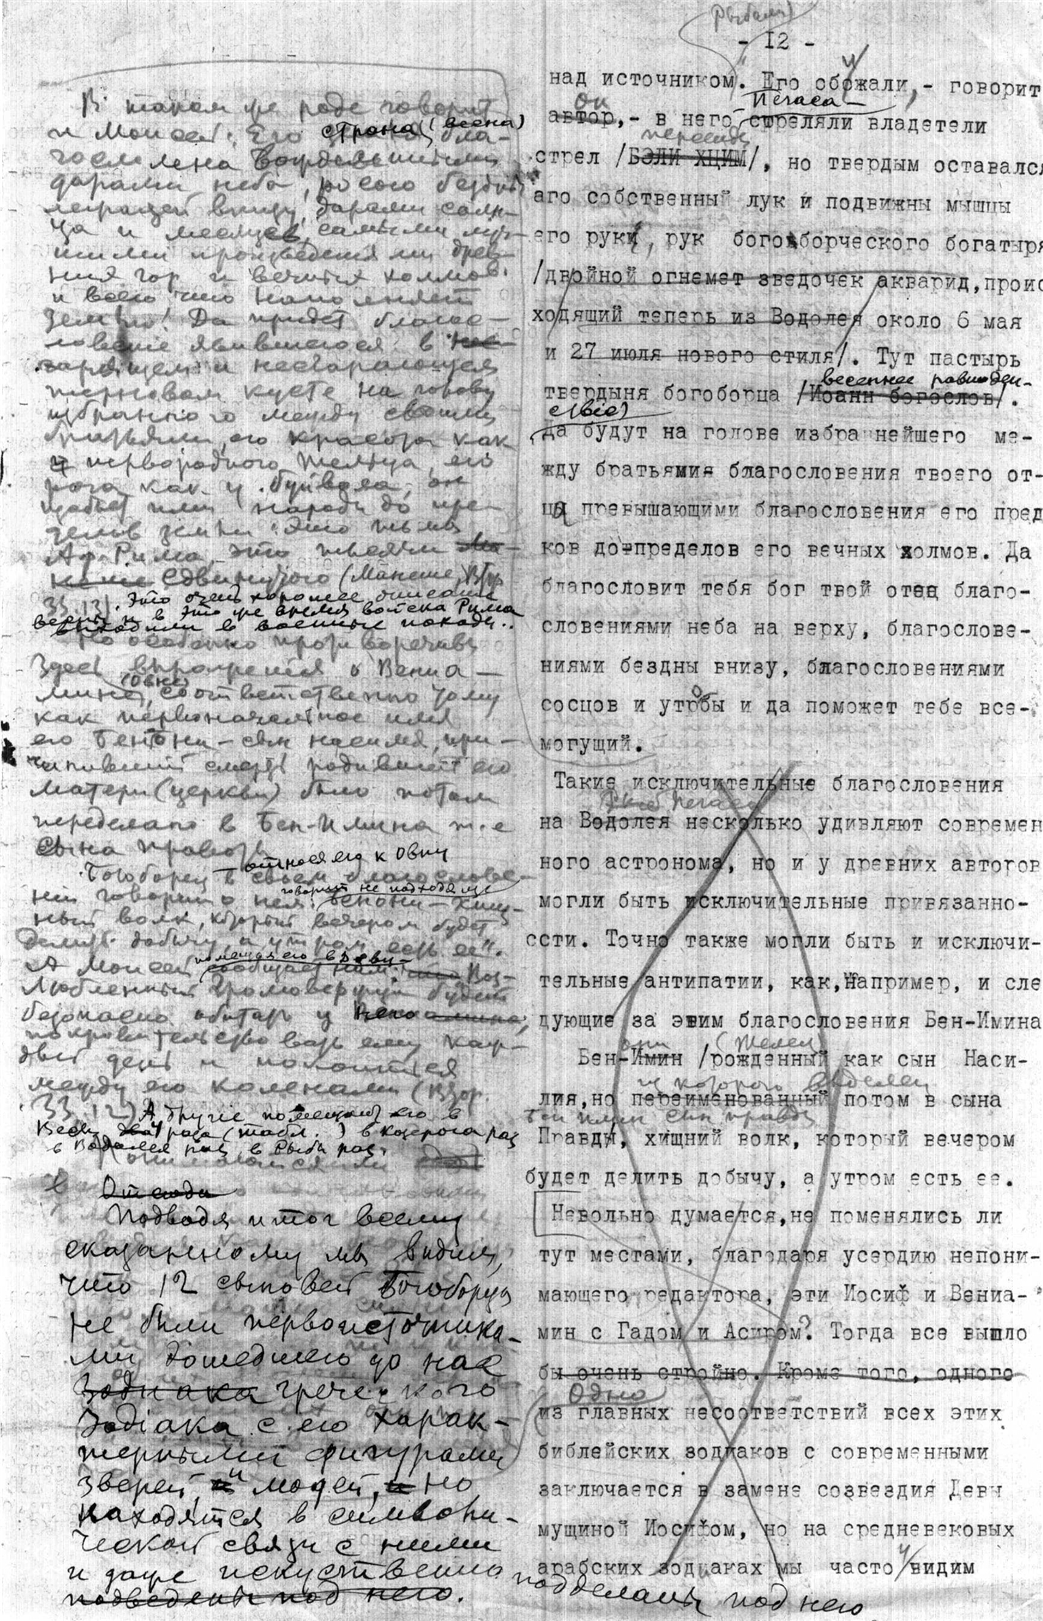 - I2 -
над источником. Его обожали,- говорит
автор,- в него стреляли владетели
стрел /БЭЛИ ХЦИМ/, но твердым оставался
аго собственный лук и подвижны мышцы
его руки, рук богоборческого богатыря
/двойной огнемет зведочек акварид,проис
ходящий теперь из Водолея около 6 мая
и 27 июля нового стиля/. Тут пастырь
весеннее равноден-
твердыня богоборца /Иоанн богослов/.
ствие)
да будут на голове избраннейшего ме-
жду братьямия благословения твоего от-
ца превышающими благословения его пред
ков до пределов его вечных холмов. Да
благословит тебя бог твой отец благо-
словениями неба на верху, благослове-
ниями бездны внизу, благословениями
сосцов и утробы и да поможет тебе все-
могущий.
Такие исключительные благословения
на Водолея несколько удивляют современ
ного астронома, но и у древних авторов
могли быть исключительные привязанно-
сти. Точно также могли быть и исключи-
тельные антипатии, как, например, и сле
дующие за этим благословения Бен-Имина
Бен-Имин /рожденный как сын Наси-
лия,но переименованный потом в сына
Правды, хищний волк, который вечером
будет делить добычу, а утром есть ее.
Невольно думается,не поменялись ли
тут местами, благодаря усердию непони-
мающего редактора, эти Иосиф и Вениа-
мин с Гадом и Асиром? Тогда все вышло
бы очень стройно. Кроме того, одного
Одно
из главных несоответствий всех этих
библейских зодиаков с современными
заключается в замене созвездия Девы
мущиной Иосифом, но на средневековых
арабских зодиаках мы часто видим
подделаны под него
В таком же роде говорит
и Моисей: Его страна (весна) бла-
гословлена вожделенными
дарами неба, росою бездны
лежащей внизу, дарами солн-
ца и месяцев, самыми луч-
шими произведениями древ-
них гор и вечных холмов
и всего что наполняет
землю! Да придет благо-
словение явившегося в
горящем и несгорающем
терновом кусте на голову
избранного между своими
братьями, его красота как
у первородного тельца, его
рога как у буйвола, он
избодет ими народы до пре-
делов земли: это тьмы
Аф-Рима это тысячи
сдвинутого (Манаше, Втор.
33.13). Это очень хорошее описание
весны и в это же время войска Рима
выходили в военные походы..
Но особенно противоречивы
здесь выражения о Вениа-
мине (овне), соответственно тому
как первоначальное имя
его Бенони - сын насилия, при-
чинившей смерть родившей его
матери (церкви) было потом
переделано в Бен-Имина т.е
сына правды.
относя его к Овну
Богоборец в своем благослове-
говорит не подходяще
нии говорит о нем: Бенони - хищ-
ный волк, который вечером будет
делить добычу, а утром есть ее".
помещая его в Деву -
А Моисей сообщает нам: Воз-
любленный Громовержцем будет
безопасно обитать у него
покровительствовать ему каж-
дый день и покоится
между его коленами (Втор.
33.12) А другие помещают его в
Весы два раза (табл. ) в козерога раз
в Водолея раз, в Рыбы раз.
Отсюда
Подводя итог всему
сказанному мы видим,
что 12 сыновей Богоборца
не были первоисточника-
ми дошедшего до нас
Зодиака греческого
Зодіака с его харак-
терными фигурами
зверей и людей, но
находятся в символи-
ческой связи с ними
и даже искуственно
подведены под него.